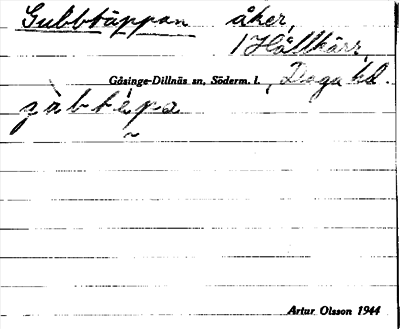 Gubbtäppan åker,
/ Hällkärr,
Gåsinge-Dillnäs sn, Söderm. l., Daga hd.
gùbbtépa
~
Artur Olsson 1944